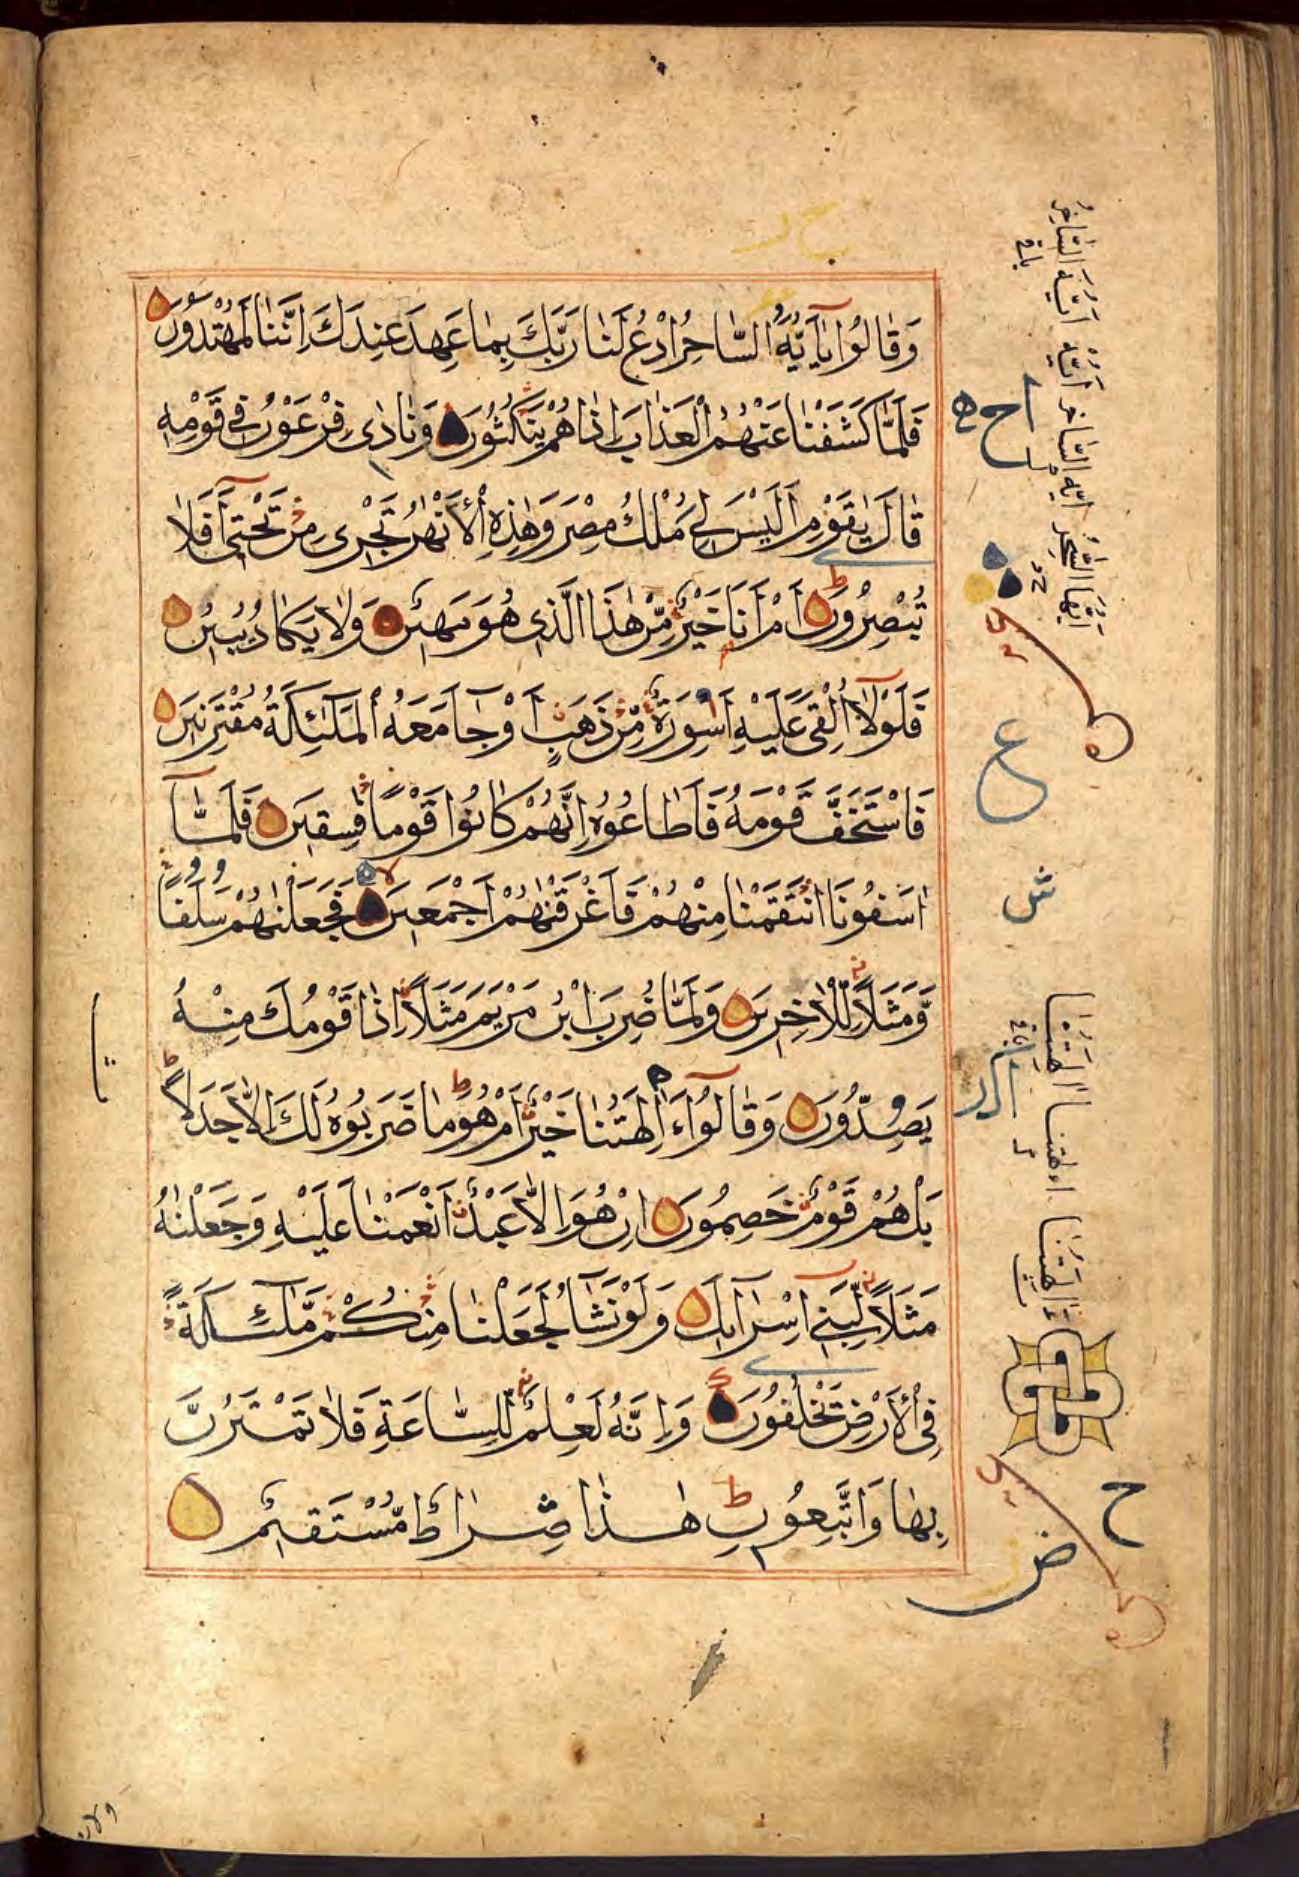 وَقَالُوا يَا أَيُّهَ السَّاحِرُ ادْعُ لَنَا رَبَّكَ بِمَا عَهِدَ عِنْدَكَ اِنَّنَا لَمُهْتَدُونَ
فَلَمَّا كَشَفْنَا عَنْهُمُ الْعَذَابَ اِذَا هُمْ يَنْكُثُونَ وَنَادٰى فِرْعَوْنُ فِي قَوْمِهٖ
قَالَ يٰقَوْمِ اَلَيْسَ لِي مُلْكُ مِصْرَ وَهٰذِهِ الْاَنْهٰرُ تَجْرِي مِنْ تَحْتِي اَفَلَا
تُبْصِرُونَ اَمْ اَنَا خَيْرٌ مِّنْ هٰذَا الَّذِي هُوَ مَهِينٌ وَلَا يَكَادُ يُبِينُ
فَلَوْلَا اُلْقِيَ عَلَيْهِ اَسْوِرَةٌ مِّنْ ذَهَبٍ اَوْ جَآءَ مَعَهُ الْمَلٰٓئِكَةُ مُقْتَرِنِينَ
فَاسْتَخَفَّ قَوْمَهُ فَاَطَاعُوهُ اِنَّهُمْ كَانُوا قَوْمًا فٰسِقِينَ فَلَمَّآ
اٰسَفُونَا انْتَقَمْنَا مِنْهُمْ فَاَغْرَقْنٰهُمْ اَجْمَعِينَ فَجَعَلْنٰهُمْ سَلَفًا
وَّمَثَلًا لِّلْاٰخِرِينَ وَلَمَّا ضُرِبَ ابْنُ مَرْيَمَ مَثَلًا اِذَا قَوْمُكَ مِنْهُ
يَصِدُّونَ وَقَالُوٓا ءَاٰلِهَتُنَا خَيْرٌ اَمْ هُوَ مَا ضَرَبُوهُ لَكَ اِلَّا جَدَلًا
بَلْ هُمْ قَوْمٌ خَصِمُونَ اِنْ هُوَ اِلَّا عَبْدٌ اَنْعَمْنَا عَلَيْهِ وَجَعَلْنٰهُ
مَثَلًا لِّبَنِي اِسْرَآئِلَ وَلَوْ نَشَآءُ لَجَعَلْنَا مِنْكُمْ مَّلٰٓئِكَةً
فِي الْاَرْضِ يَخْلُفُونَ وَاِنَّهُ لَعِلْمٌ لِّلسَّاعَةِ فَلَا تَمْتَرُنَّ
بِهَا وَاتَّبِعُونِ هٰذَا صِرَاطٌ مُّسْتَقِيمٌ
ع
ش
ح
ض